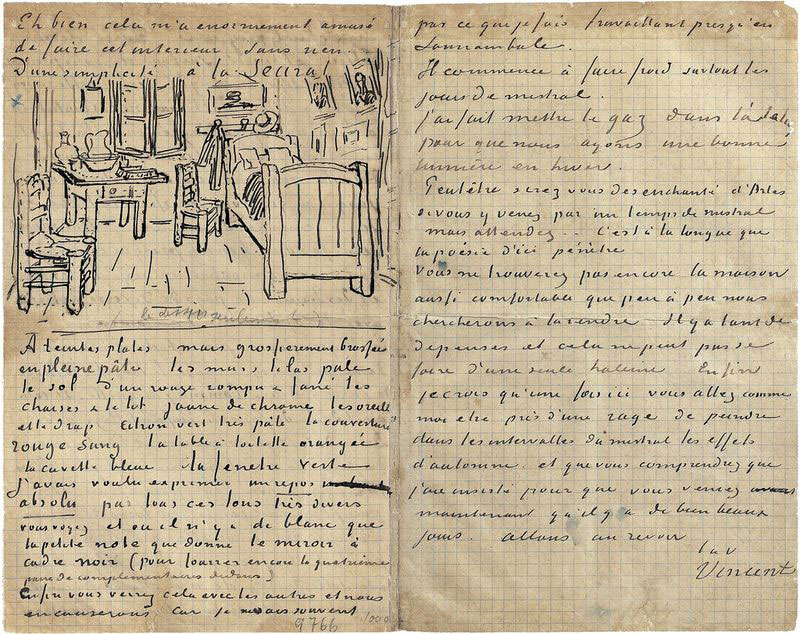 Eh bien cela m'a enormement amusé
de faire cet interieur sans rien.
D'une simplicité à la Seurat
le dessus seulement
A teintes plates mais grossierement brossées
en pleine pâte les murs lilas pale
le sol d'un rouge rompu & fané les
chaises & le lit jaune de chrome les oreillers
et le drap citron vert très pâle la couverture
rouge sang la table à toilette orangée
la cuvette bleue la fenetre verte
J'avais voulu exprimer un repos
absolu par tous ces tons très divers
vous voyez et où il n'y a de blanc que
la petite note que donne le miroir à
cadre noir (pour fourrer encore la quatrieme
paire de complementaires dedans)
Enfin vous verrez cela avec les autres et nous
en causerons car je ne sais souvent
9766 1000
par ce que je fais travaillant presqu'en
somnambule.
Il commence à faire froid surtout les
jours de mistral.
J'ai fait mettre le gaz dans
pour que nous ayons une bonne
lumière en hiver.
Peutêtre serez vous desenchanté d'Arles
si vous y venez par un temps de mistral
mais attendez.. C'est à la longue que
la poésie d'ici pénètre
Vous ne trouverez pas encore la maison
aussi comfortable que peu à peu nous
chercherons à la rendre Il y a tant de
depenses et cela ne peut pas se
faire d'une seule haleine Enfin
je crois qu'une fois ici vous allez comme
moi etre pris d'une rage de peindre
dans les intervalles du mistral les effets
d'automne. et que vous comprendrez que
j'aie insisté pour que vous veniez
maintenant qu'il y a de bien beaux
jours. allons au revoir
t. à v
Vincent